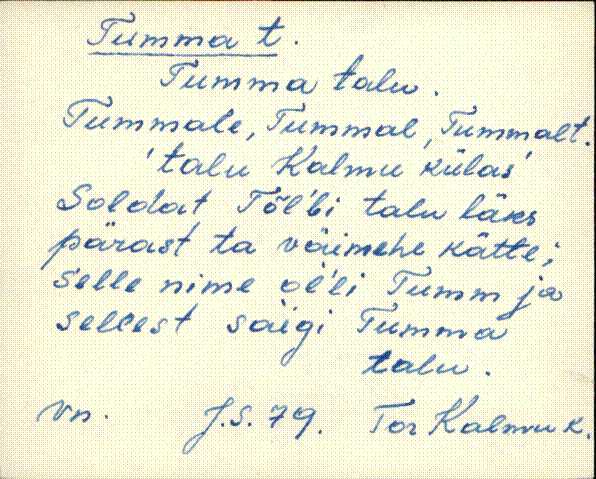 Tumma t.
Tumma talu.
Tummale, Tummal, Tummalt.
'talu Kalmu külas'
Soldat Tõl'bi talu läks
pärast ta väimehe kätte;
selle nime ol'li Tumm ja
sellest saigi Tumma
talu.
vn. J.S. 79. Tor Kalmu k.